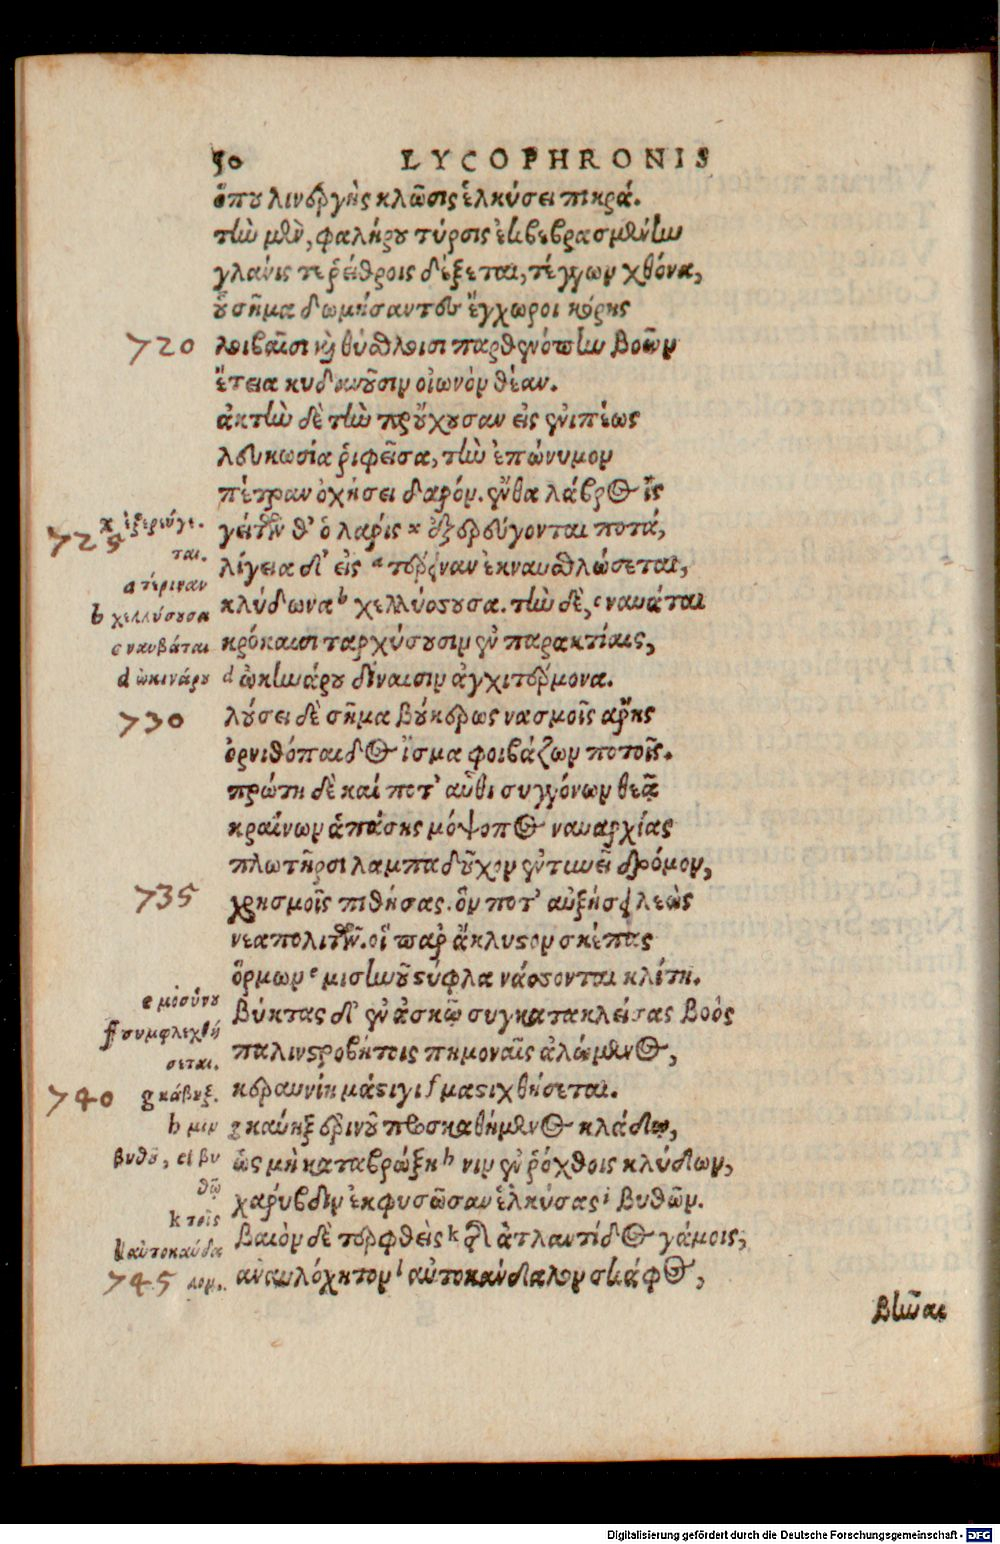 50 LYCOPHRONIS
ὅπου λινεργὴς κλῶσις ἑλκύσει πικρά.
τὴν μὲν, φαλήρου τύρσις ἐκβεβρασμένην
γλάνις τε ῥείθροις δέξεται, τέγγων χθόνα,
οὗ σῆμα δωμήσαντες ἔγχωροι κόρης
720 λοιβαῖσι καὶ θύσθλοισι παρθενόπην βοῶν
ἔτεια κυδανοῦσιν οἰωνὸν θεάν.
ἀκτὴν δὲ τὴν προὔχουσαν εἰς ἐνιπέως
λευκωσία ῥιφεῖσα, τὴν ἐπώνυμον
πέτραν ὀχήσει δαρόν. ἔνθα λάβρος ἲς
725 γείτων θ' ὁ λαρὶς x ἐξερεύγονται ποτά,
λίγεια δ' εἰς a τέρειναν ἐκναυσθλώσεται,
κλύδωνα b χελλύσουσα. τὴν δὲ, c ναυάται
κρόκαισι ταρχύσουσιν ἐν παρακτίαις,
d ὠκηνάρου δίναισιν ἀγχιτέρμονα.
730 λούσει δὲ σῆμα βούκερως νασμοῖς ἄρης
ὀρνιθόπαιδος ἴσμα φοιβάζων ποτοῖς.
πρώτη δὲ καί ποτ' αὖθι συγγόνων θεᾷ
κραίνων ἁπάσης μόψοπος ναυαρχίας
πλωτῆρσι λαμπαδοῦχον ἐντυνεῖ δρόμον,
735 χρησμοῖς πιθήσας. ὅν ποτ' αὐξήσει λεὼς
νεαπολιτῶν. οἳ παρ' ἄκλυστον σκέπας
ὅρμων e μισηνοῦ στύφλα νάσσονται κλίτη.
βύκτας δ' ἐν ἀσκῷ συγκατακλείσας βοὸς
παλινστροβήτοις πημοναῖς ἀλώμενος,
740 κεραυνίῃ μάστιγι f μαστιχθήσεται.
g καύηξ ἐρινοῦ προσκαθήμενος κλάδῳ,
ὡς μὴ καταβρώξῃ h νιν ἐν ῥόχθοις κλύδων,
χάρυβδιν ἐκφυσῶσαν ἑλκύσας i βυθῶν.
βαιὸν δὲ τερφθεὶς k τῆς ἀτλαντίδος γάμοις,
745 ἀναυλόχητον l αὐτοκάνδαλον σκάφος,
βῆναι
x ἐξερεύγε-
ται.
a τέριναν
b χελλύσουσα
c ναυβάται
d ὠκινάρου
e μισύνου
f συμφλεχθή
σεται.
g κάβηξ.
h μιν
βυθοῦ, εἰ βυ
θῷ
k τοῖς
l αὐτοκαύδα
λον.
Digitalisierung gefördert durch die Deutsche Forschungsgemeinschaft - DFG